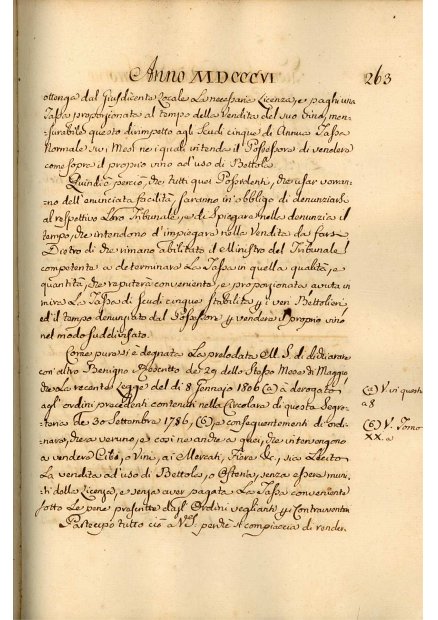 Anno MDCCCVI 263
ottenga dal Giusdicente Locale La necessaria Licenza, e paghi una
Tassa proporzionata al tempo della Vendita del suo vino, men-
surabile questo dirimpetto agli Scudi cinque di Annua Tassa
Normale sui Mesi ne i quali intende il Possessore di vendere
come sopra il proprio vino ad uso di Bettola
Quindi è perciò, che tutti quei Possidenti, che usar vorran-
no dell'enunciata facilità, saranno in obbligo di denunziarsi
al respettivo Loro Tribunale, e di Spiegare nella denunzia il
tempo, che intendono d'impiegare nella Vendita da farsi
Dietro di che rimane abilitato il Ministro del Tribunale
competente a determinare La Tassa in quella qualità, e
quantità, che reputerà conveniente, e proporzionata avuta in
mira La Tassa di Scudi cinque stabilita p i veri Bettolieri
ed il tempo denunziato dal Possessore p vendere il proprio vino
nel modo suddivisato.
Come pure si è degnata La prelodata M. S. di dichiarare
con altro Benigno Rescritto de 29 dello Stesso Mese di Maggio
che La recente Legge del dì 8 Gennajo 1806 (a) à derogato
agl'ordini precedenti contenuti nella Circolare di questa Segre-
teria de 30 Settembre 1786, (b) e conseguentemente di ordi-
nare, che a veruno, e così ne anche a quei, che intervengono
a vendere Cibo, o Vini, ai Mercati, Fiere &c, sia Lecito
La vendita ad uso di Bettola, o Osteria, senza essere muni-
ti della Licenza, e senza aver pagata La Tassa conveniente
sotto Le pene prescritte dagl'Ordini veglianti p i Contravventori
Partecipo tutto ciò a VS. perchè si compiaccia di render-
(a) V. in questo
a 8
(b) V. Tomo
XX. a